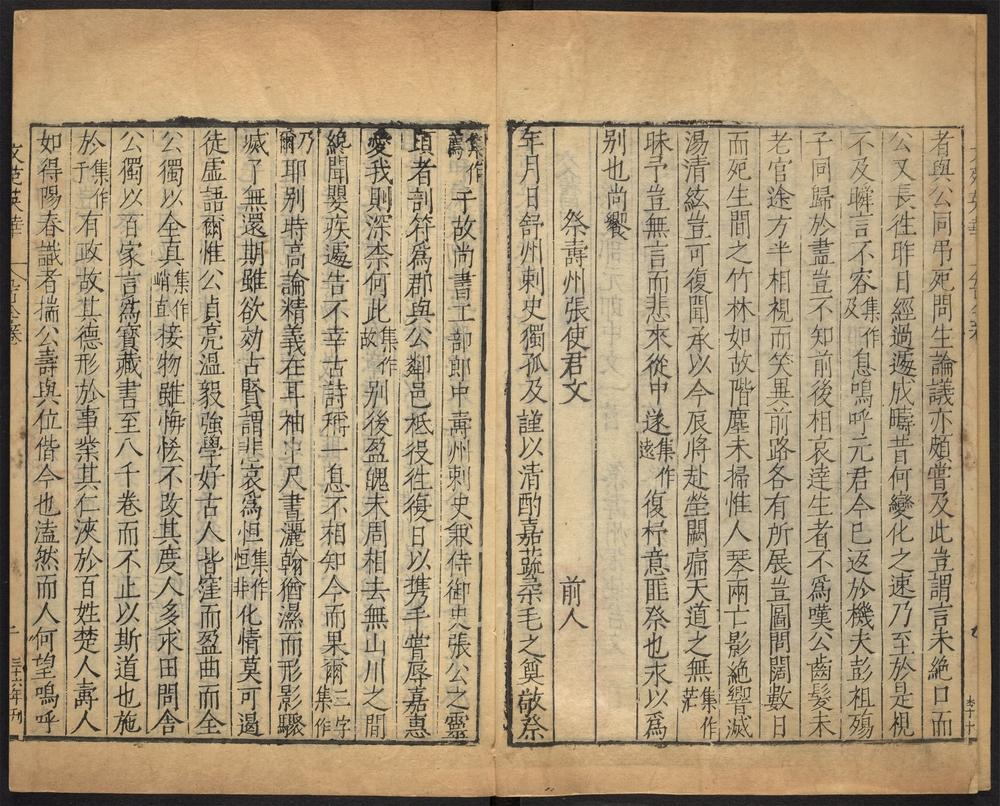 者與公同弔死問生論議亦頗嘗及此豈謂言未絶口而
公又長徃昨日經過遽成疇昔何變化之速乃至於是視
不及瞬言不容集作及息嗚呼元君今已返於機夫彭祖殤
子同歸於盡豈不知前後相哀達生者不爲嘆公齒髮未
老官途方半相視而笑異前路各有所展豈圖間闊數日
而死生間之竹林如故階塵未掃惟人琴兩亡影絶響滅
湯清絃豈可復聞承以今辰將赴塋闕痛天道之無集作茫
昧予豈無言而悲來從中遂集作遠復杼意匪祭也永以爲
別也尚饗
祭壽州張使君文 前人
年月日舒州刺史獨孤及謹以清酌嘉蔬柔毛之奠敬祭
集作薦于故尚書工部郎中壽州刺史兼侍御史張公之靈
頃者剖符爲郡與公鄰邑柢役徃復日以携手嘗辱嘉惠
愛我則深柰何此集作故別後盈魄未周相去無山川之間
繞聞嬰疾遽告不幸古詩稱一息不相知今而果爾三字集作
乃爾耶别時高論精義在耳袖中尺書灑翰猶濕而形影驟
滅了無還期雖欲効古賢謂非哀爲怛集作恒非化情莫可遏
徒虚語爾惟公貞亮溫毅強學好古人皆窪而盈曲而全
公獨以全真集作峭直接物雖悔恡不改其度人多求田問舎
公獨以百家言爲寳藏書至八千卷而不止以斯道也施
於集作于有政故其德形於事業其仁浹於百姓楚人壽人
如得陽春識者揣公壽與位偕今也溘然而人何望嗚呼
文苑英華